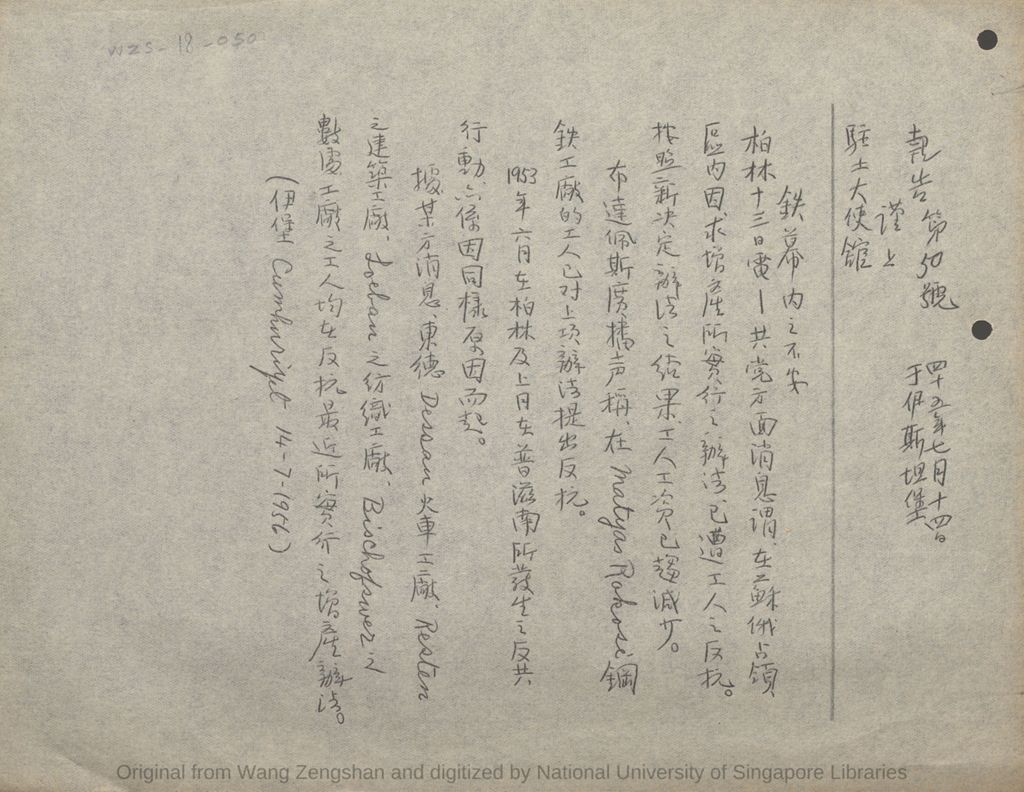 WZS-18-050
報告第50號
四十五年七月十四日
于伊斯坦堡
謹上
駐土大使館
鉄幕內之不安
柏林十三日電—共党方面消息謂、在蘇俄占領
區內因求增產所實行之辦法、已遭工人之反抗。
按照新決定辦法之結果、工人工資已趨減少。
布達佩斯廣播声稱、在 Matyas Rakosi 鋼
鉄工廠的工人已对上項辦法提出反抗。
1953年六月在柏林及上月在普滋南所發生之反共
行動、亦係因同樣原因而起。
據某方消息、東德 Dessau 火車工廠、Resten
之建築工廠、Loebau 之紡織工廠、Bischofswer 之
數處工廠之工人均在反抗最近所實行之增產辦法。
(伊堡 Cumhuriyet 14-7-1956)
Original from Wang Zengshan and digitized by National University of Singapore Libraries